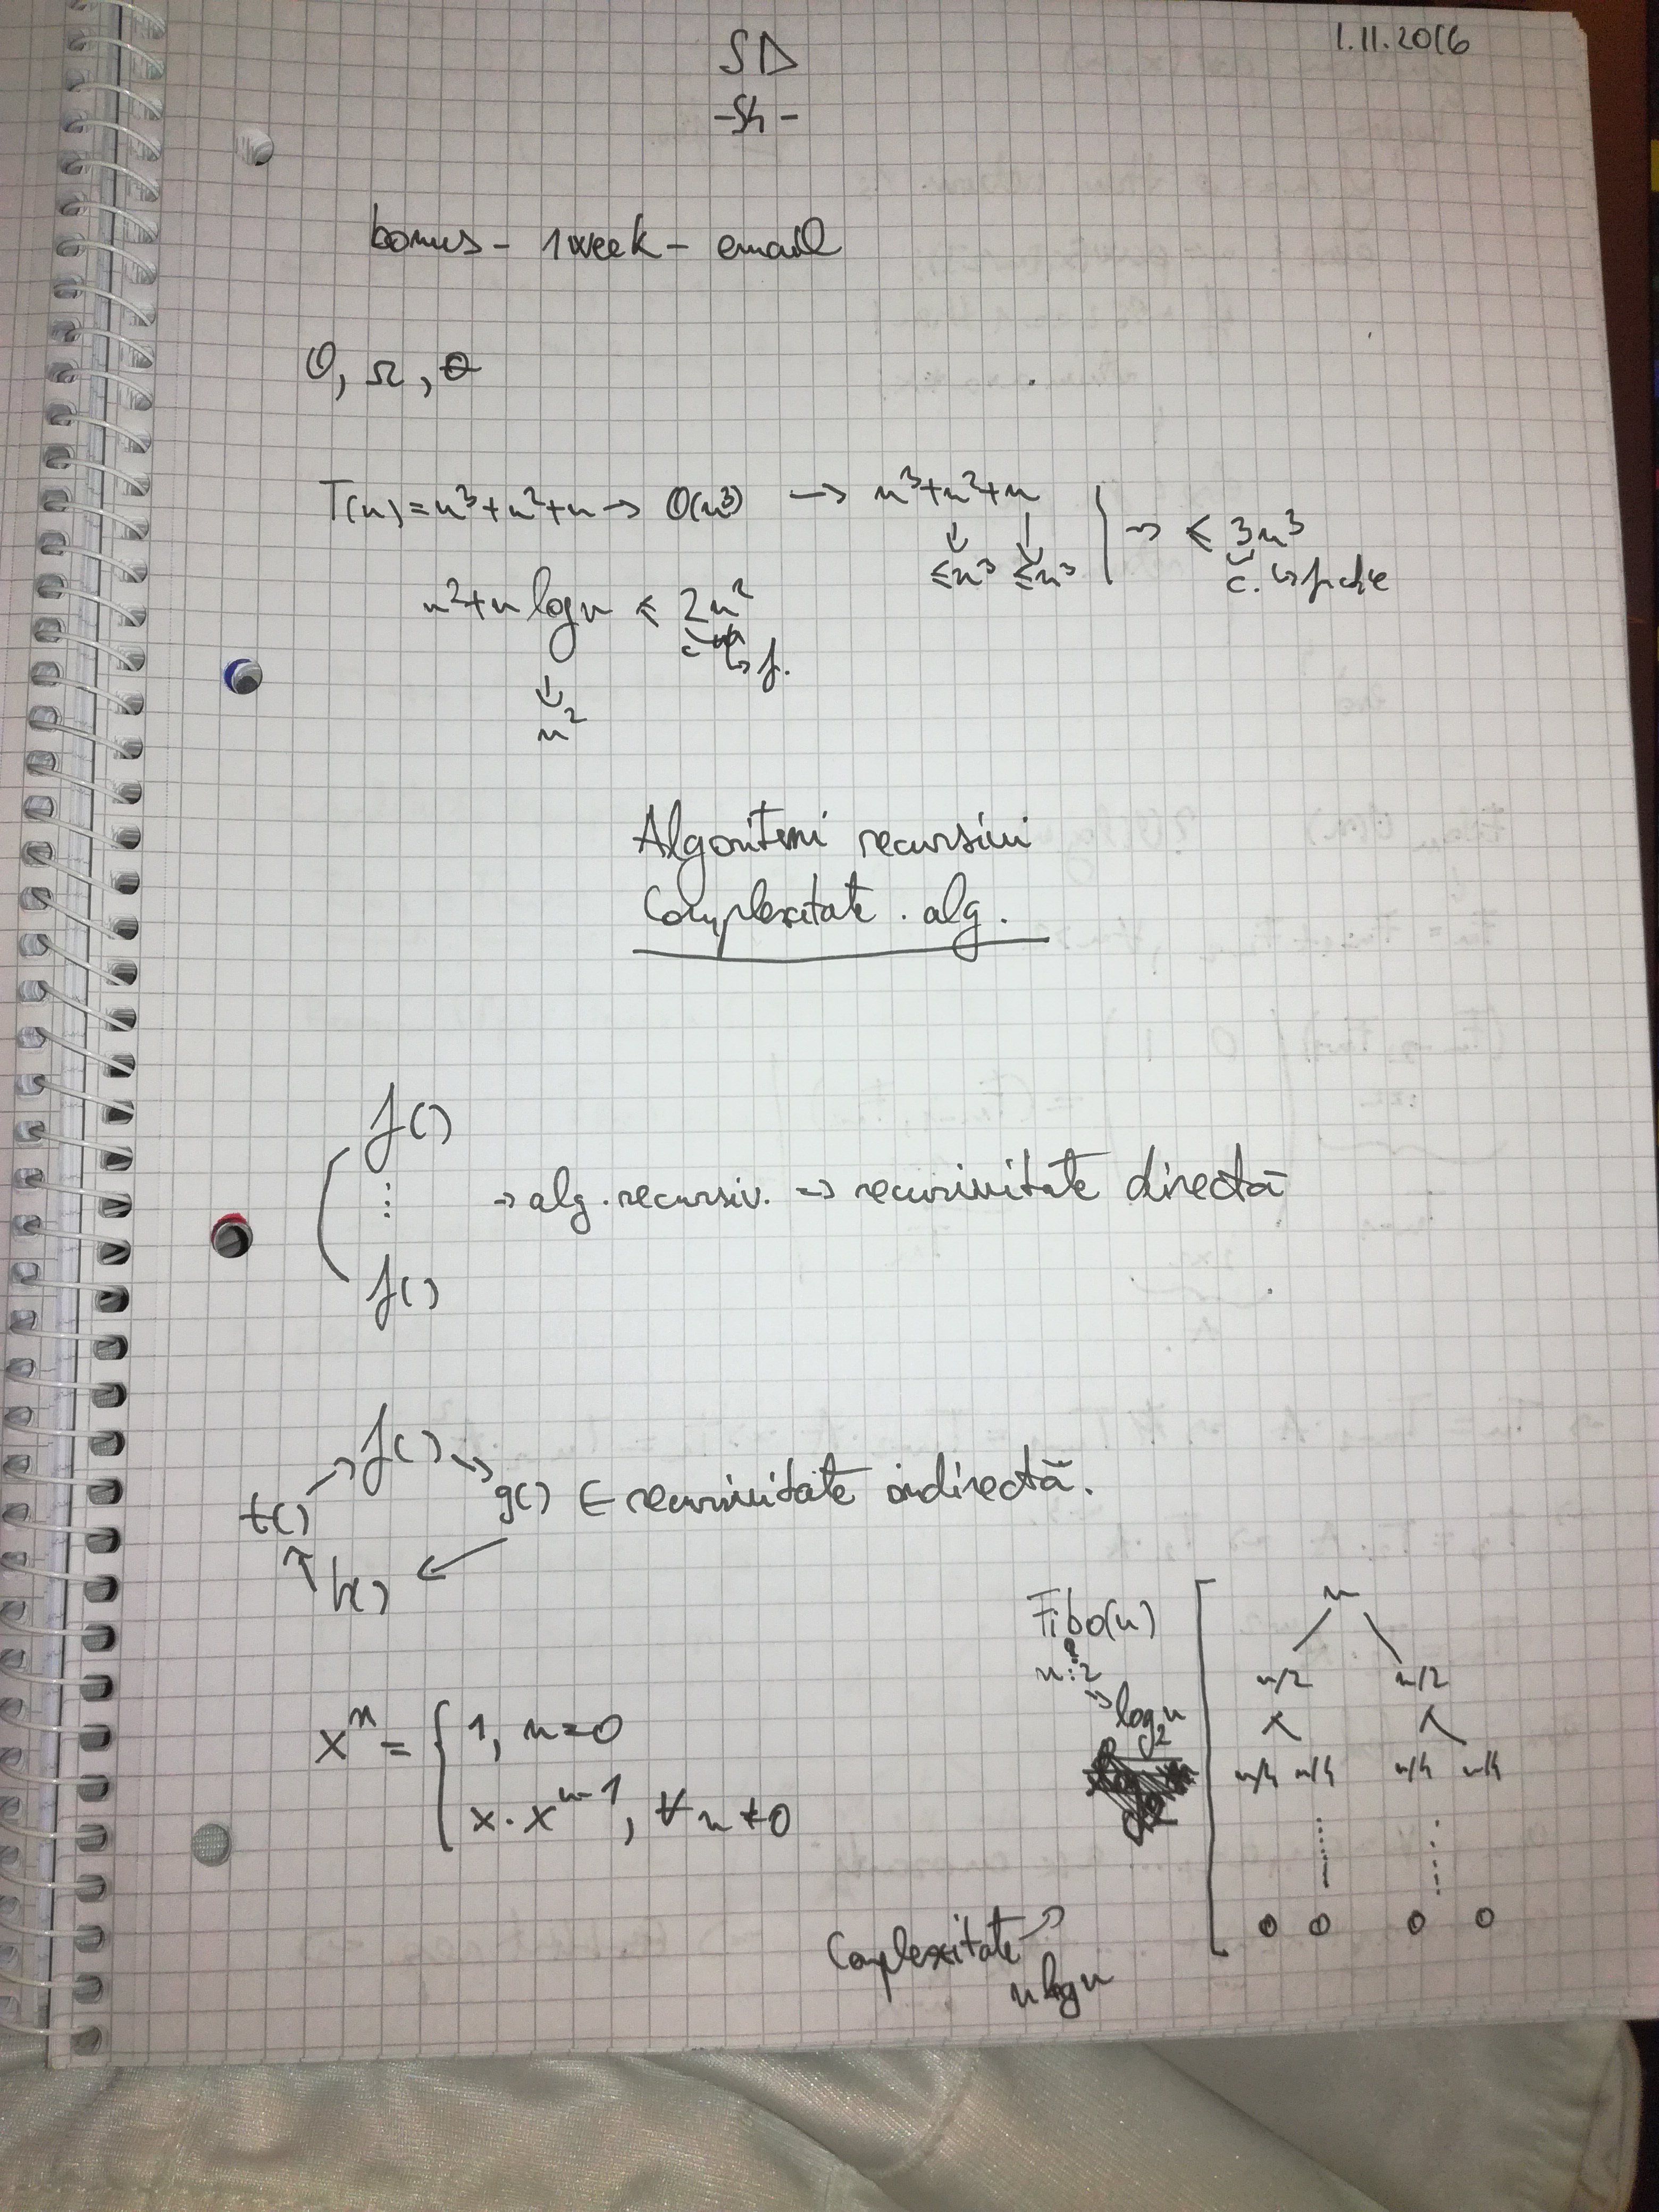 1.11.2016
SD
-S4-
bonus - 1 week - email
O, Ω, Θ
T(n) = n³+n²+n → O(n³) → n³+n²+n | → ≤ 3n³
↓ ↓
≤n³ ≤n³
c. ↳
n²+n log n ≤ 2n²
c ↳ f.
↓
n²
Algoritmi recursivi
Complexitate . alg.
f()
⋮ → alg. recursiv. → recursivitate directă
f()
f() → g() ← recursivitate indirectă.
t()
h()
xⁿ = { 1, n=0
x·xⁿ⁻¹, ∀ n≠0
Fibo(n)
n:2
→ log₂n
n
n/2 n/2
n/4 n/4 n/4 n/4
0 0 0 0
Complexitate →
n log n